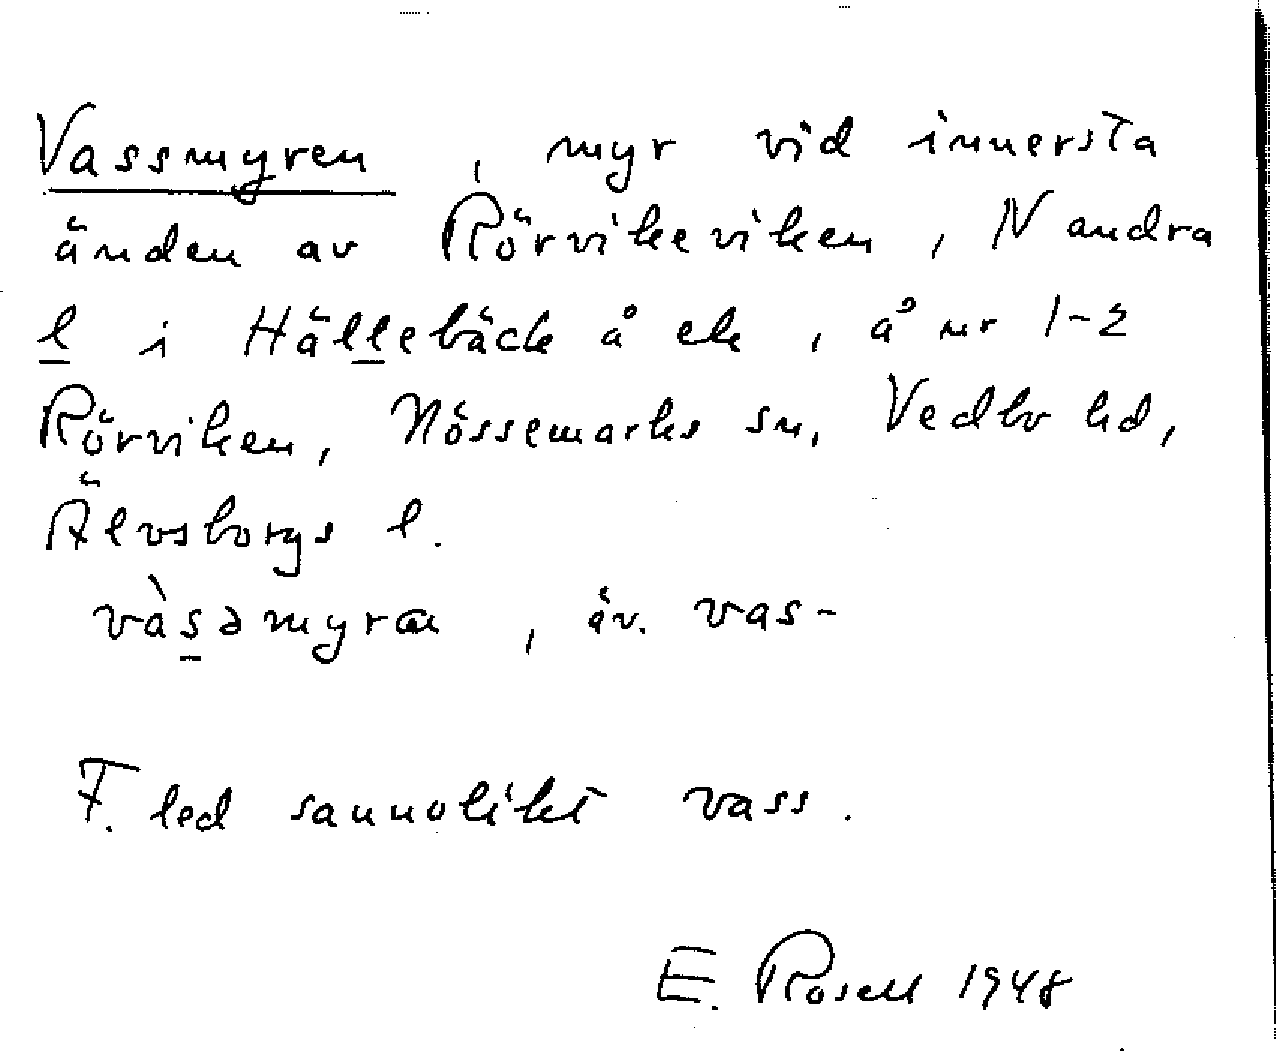 Vassmyren, myr vid innersta
änden av Rörvikeviken, N andra
l i Hällebäck å ek, å nr 1-2
Rörviken, Nössemarks sn, Vedbo hd,
Älvsborgs l.
vàsəmyræn, äv. vas-
F. led sannolikt vass.
E. Rosell 1948